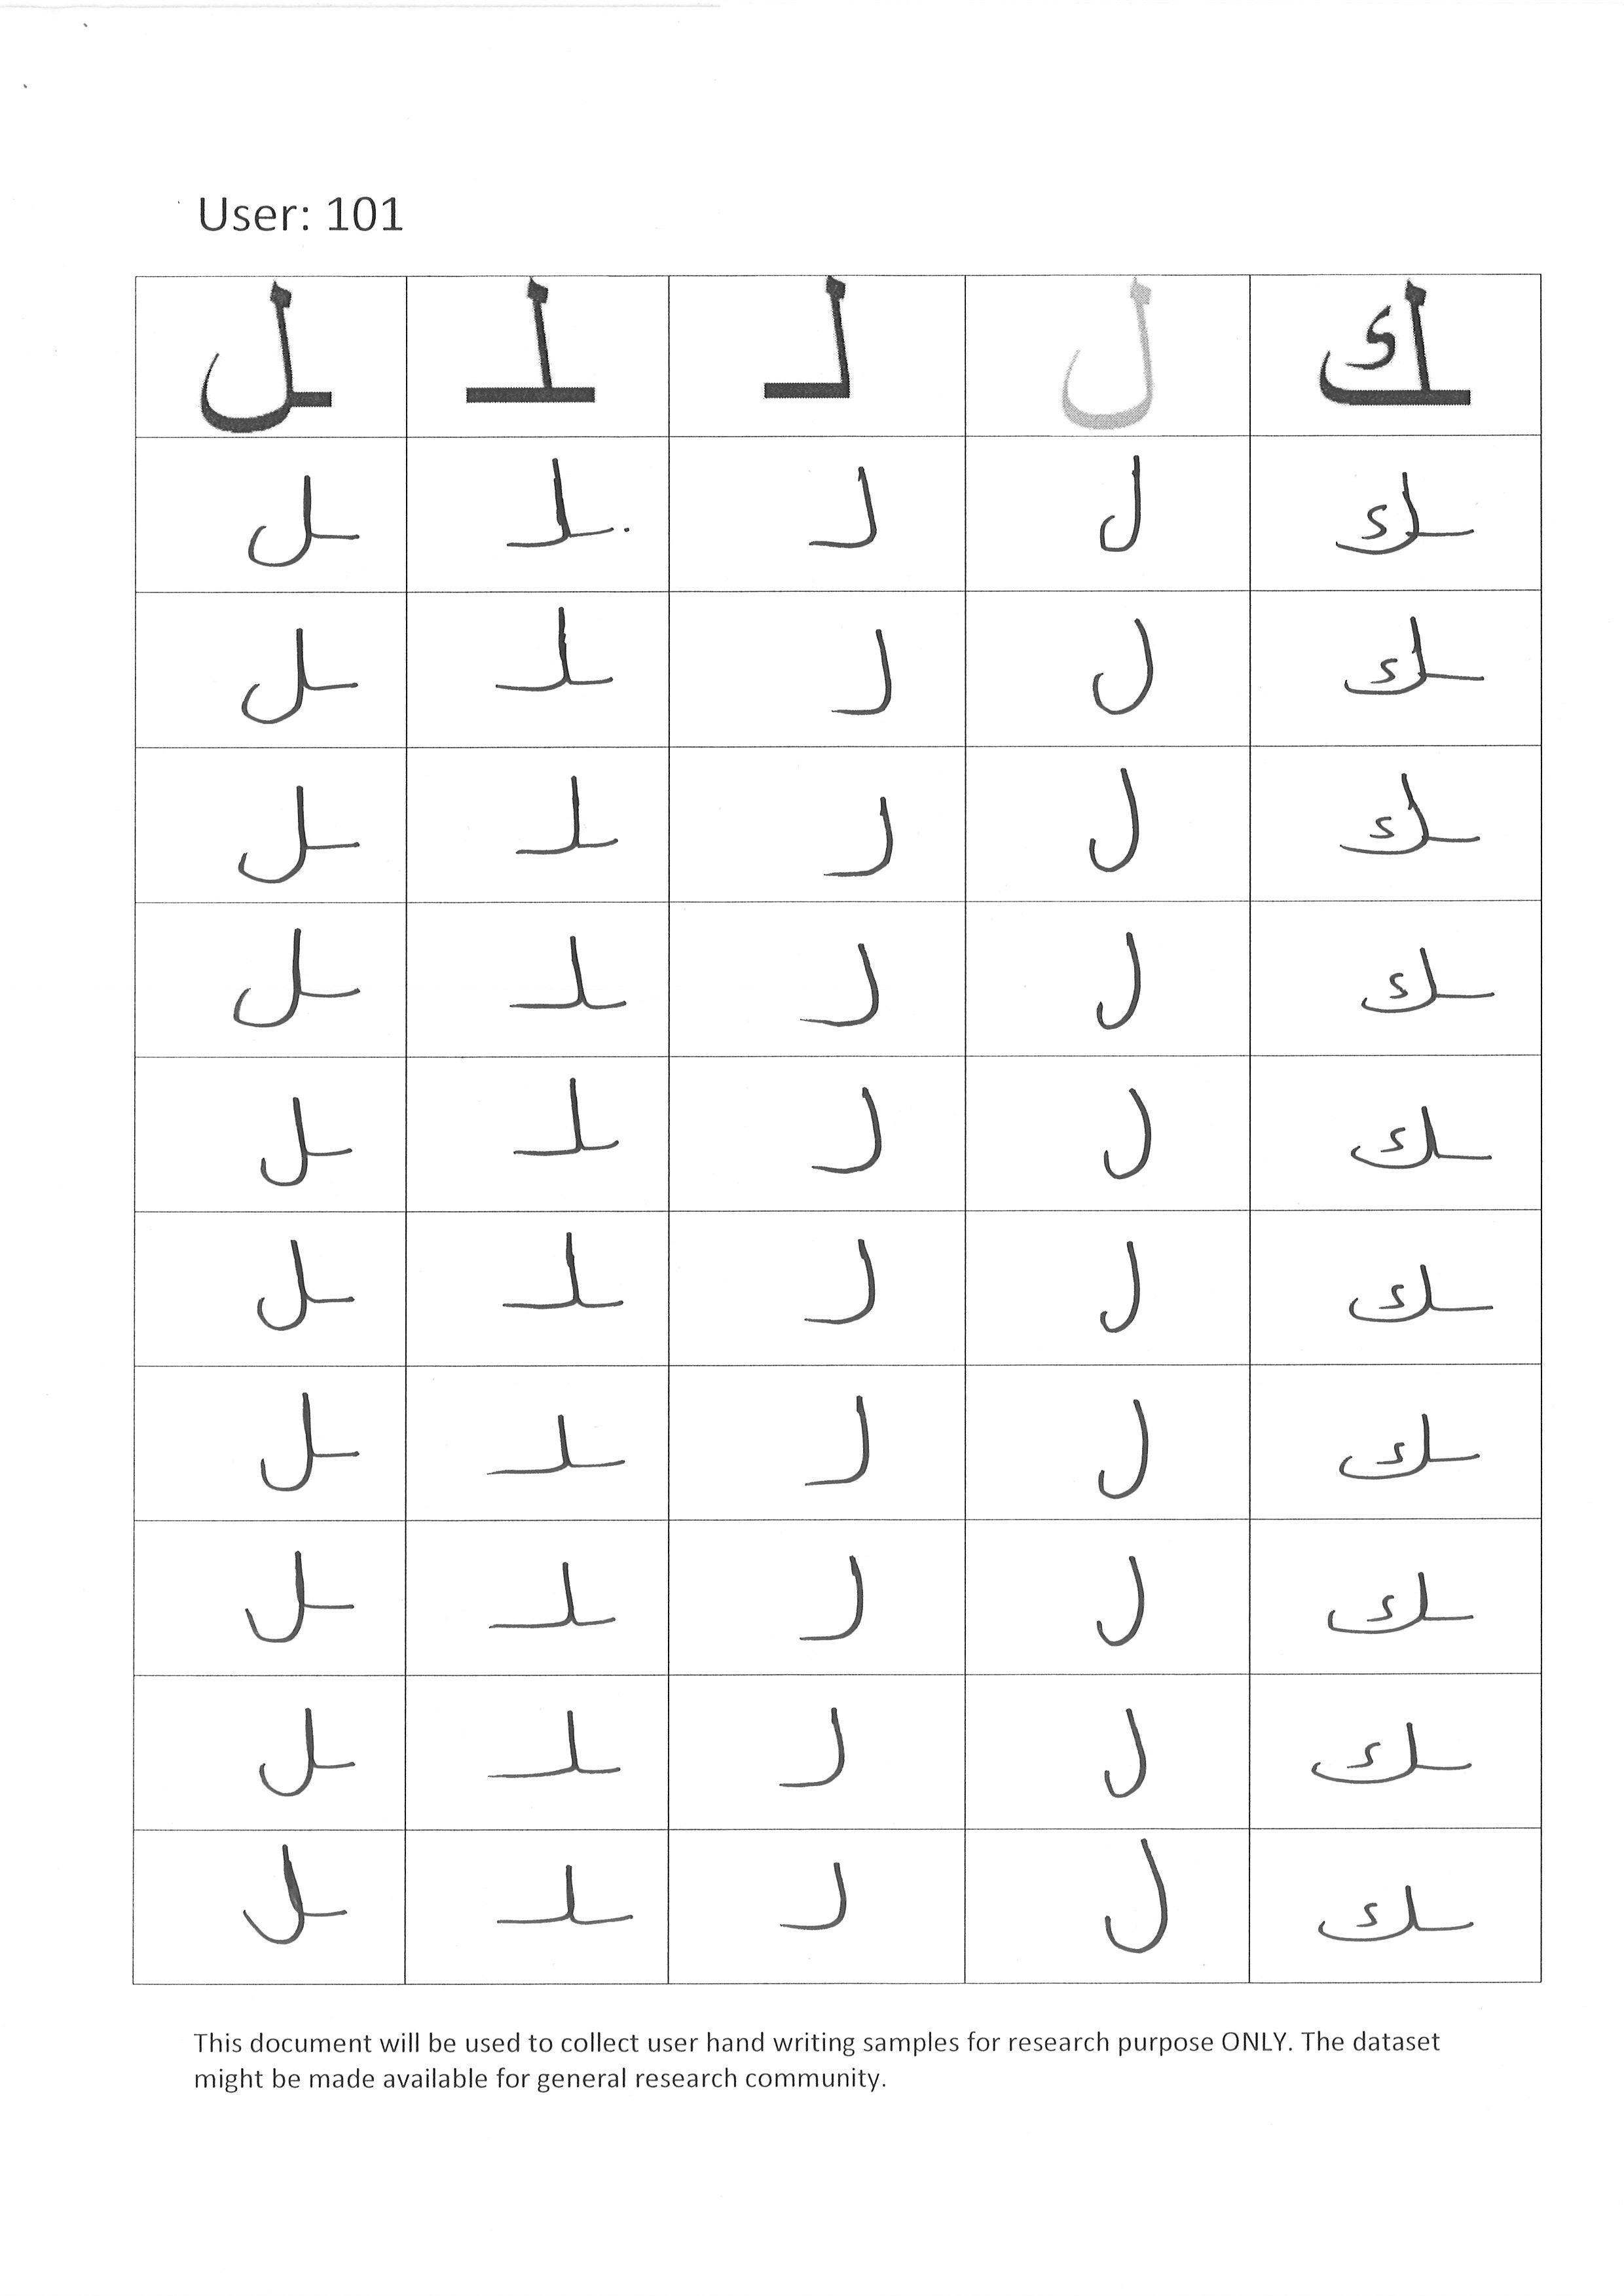 User: 101
ـك ل لـ ـلـ ـل
ـك ل لـ ـلـ ـل
ـك ل لـ ـلـ ـل
ـك ل لـ ـلـ ـل
ـك ل لـ ـلـ ـل
ـك ل لـ ـلـ ـل
ـك ل لـ ـلـ ـل
ـك ل لـ ـلـ ـل
ـك ل لـ ـلـ ـل
ـك ل لـ ـلـ ـل
ـك ل لـ ـلـ ـل
This document will be used to collect user hand writing samples for research purpose ONLY. The dataset
might be made available for general research community.